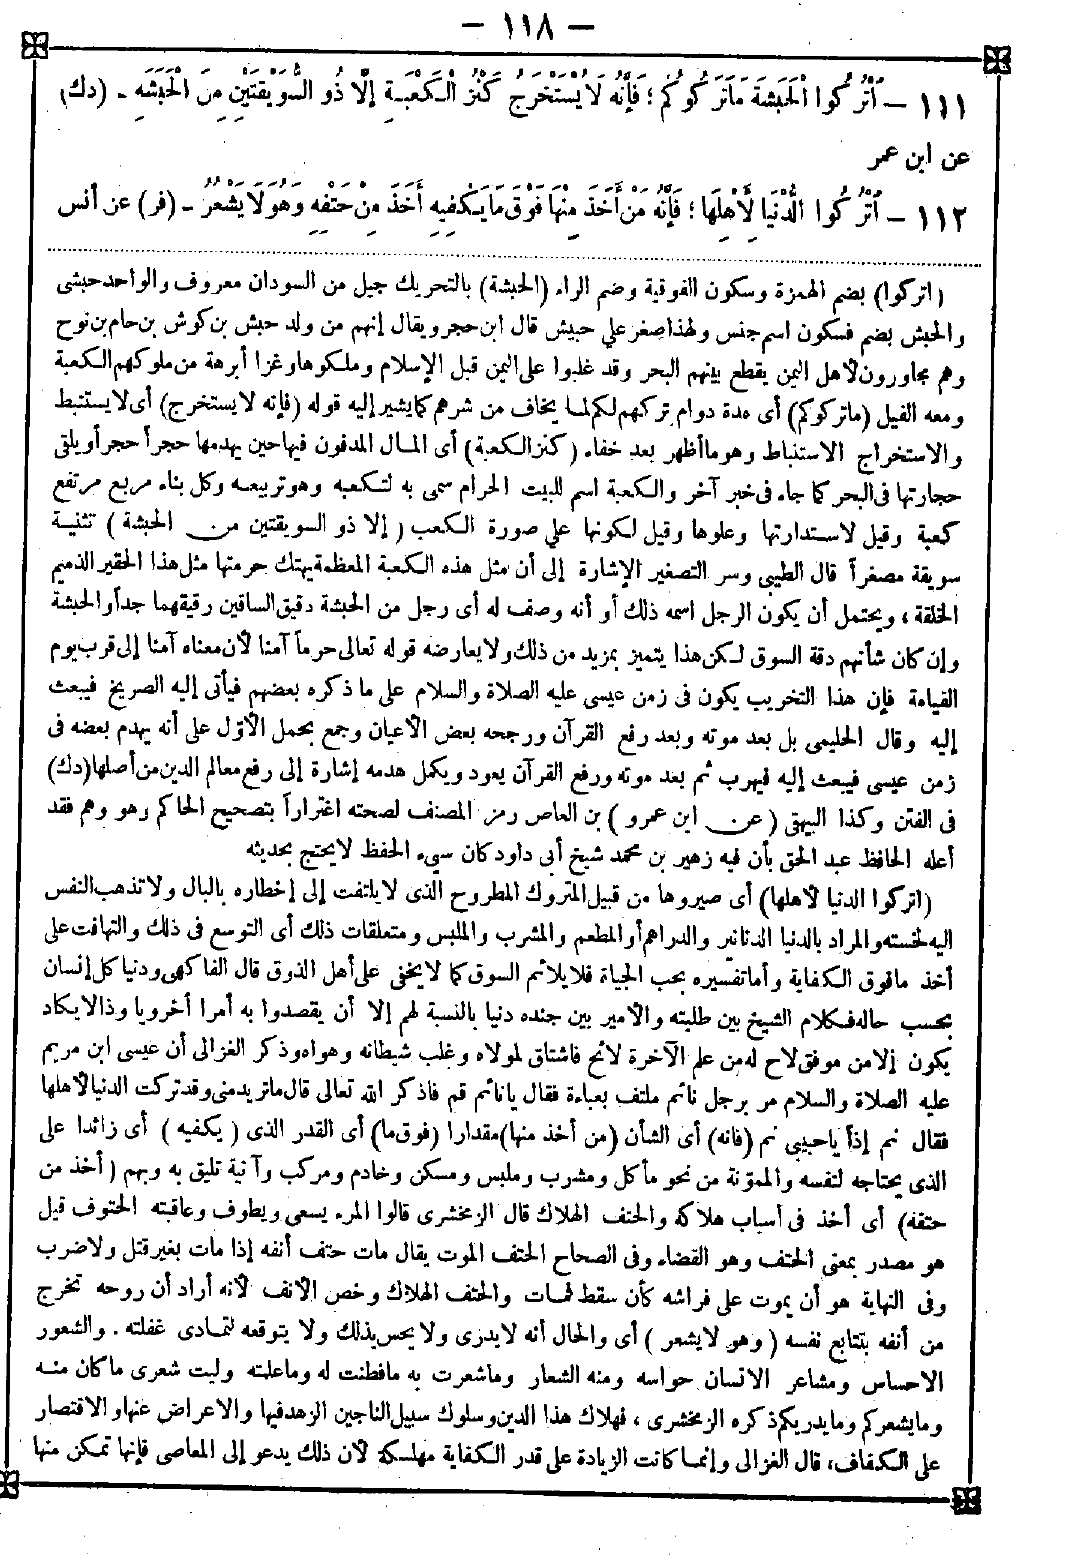 — ١١٨ —
١١١ — اُتْرُكُوا الْحَبَشَةَ مَا تَرَكُوكُمْ؛ فَإِنَّهُ لَا يَسْتَخْرِجُ كَنْزَ الْكَعْبَةِ إلَّا ذُو السُّوَيْقَتَيْنِ مِنَ الْحَبَشَةِ - (دك)
عن ابن عمر
١١٢ — اُتْرُكُوا الدُّنْيَا لِأَهْلِهَا؛ فَإِنَّهُ مَنْ أَخَذَ مِنْهَا فَوْقَ مَا يَكْفِيهِ أَخَذَ مِنْ حَتْفِهِ وَهُوَ لَا يَشْعُرُ - (فر) عن أنس
(اتركوا) بضم الهمزة وسكون الفوقية وضم الراء (الحبشة) بالتحريك جيل من السودان معروف والواحد حبشى
والحبش بضم فسكون اسم جنس ولهذا صغر على حبيش قال ابن حجر ويقال إنهم من ولد حبش بن كوش بن حام بن نوح
وهم مجاورون لأهل اليمن يقطع بينهم البحر وقد غلبوا على اليمن قبل الإسلام وملكوها وغزا أبرهة من ملوكهم الكعبة
ومعه الفيل (ما تركوكم) أى مدة دوام تركهم لكم لما يخاف من شرهم كما يشير إليه قوله (فإنه لا يستخرج) أى لا يستنبط
والاستخراج الاستنباط وهو ما أظهر بعد خفاء (كنز الكعبة) أى المال المدفون فيها حين يهدمها حجراً حجراً ويلقى
حجارتها فى البحر كما جاء فى خبر آخر والكعبة اسم للبيت الحرام سمى به لتكعبه وهو تربيعه وكل بناء مربع مرتفع
كعبة وقيل لاستدارتها وعلوها وقيل لكونها على صورة الكعب (إلا ذو السويقتين من الحبشة) تثنية
سويقة مصغراً قال الطيبى وسر التصغير الإشارة إلى أن مثل هذه الكعبة المعظمة يهتك حرمتها مثل هذا الحقير الذميم
الخلقة، ويحتمل أن يكون الرجل اسمه ذلك أو أنه وصف له أى رجل من الحبشة دقيق الساقين رقيقهما جداً والحبشة
وإن كان شأنهم دقة السوق لكن هذا يتميز بمزيد من ذلك ولا يعارضه قوله تعالى حرماً آمنا لأن معناه آمنا إلى قرب يوم
القيامة فإن هذا التخريب يكون فى زمن عيسى عليه الصلاة والسلام على ما ذكره بعضهم فيأتى إليه الصريخ فيبعث
إليه وقال الحليمى بل بعد موته وبعد رفع القرآن ورجحه بعض الأعيان وجمع بحمل الأوّل على أنه يهدم بعضه فى
زمن عيسى فيبعث إليه فيهرب ثم بعد موته ورفع القرآن يعود ويكمل هدمه إشارة إلى رفع معالم الدين من أصلها (دك)
فى الفتن وكذا البيهقى (عن ابن عمرو) بن العاص رمز المصنف لصحته اغتراراً بتصحيح الحاكم وهو وهم فقد
أعله الحافظ عبد الحق بأن فيه زهير بن محمد شيخ أبى داود كان سيء الحفظ لا يحتج بحديثه
(اتركوا الدنيا لأهلها) أى صيروها من قبيل المتروك المطروح الذى لا يلتفت إلى إخطاره بالبال ولا تذهب النفس
اليه لخسته والمراد بالدنيا الدنانير والدراهم أو المطعم والمشرب والملبس ومتعلقات ذلك أى التوسع فى ذلك والتهافت على
أخذ ما فوق الكفاية وأما تفسيره بحب الحياة فلا يلائم السوق كما لا يخفى على أهل الذوق قال الفاكهى ودنيا كل إنسان
بحسب حاله فكلام الشيخ بين طلبته والأمير بين جنده دنيا بالنسبة لهم إلا أن يقصدوا به أمرا أخرويا وذا لا يكاد
يكون إلا من موفق لاح له من علم الآخرة لائح فاشتاق لمولاه وغلب شيطانه وهواه وذكر الغزالى أن عيسى ابن مريم
عليه الصلاة والسلام مر برجل نائم ملتف بعباءة فقال يا نائم قم فاذكر الله تعالى قال ما تريد منى وقد تركت الدنيا لأهلها
فقال نم إذاً يا حبيبى نم (فانه) أى الشأن (من أخذ منها) مقدارا (فوق ما) أى القدر الذى (يكفيه) أى زائدا على
الذى يحتاجه لنفسه والممونة من نحو مأكل ومشرب وملبس ومسكن وخادم ومركب وآنية تليق به وبهم (أخذ من
حتفه) أى أخذ فى أسباب هلاكه والحتف الهلاك قال الزمخشرى قالوا المرء يسعى ويطوف وعاقبته الحتوف قيل
هو مصدر بمعنى الحتف وهو القضاء وفى الصحاح الحتف الموت يقال مات حتف أنفه إذا مات بغير قتل ولا ضرب
وفى النهاية هو أن يموت على فراشه كأن سقط فمات والحتف الهلاك وخص الأنف لأنه أراد أن روحه تخرج
من أنفه بتتابع نفسه (وهو لا يشعر) أى والحال أنه لا يدرى ولا يحس بذلك ولا يتوقعه لتمادى غفلته. والشعور
الاحساس ومشاعر الانسان حواسه ومنه الشعار وماشعرت به مافطنت له وماعلمته وليت شعرى ماكان منه
ومايشعركم ومايدريكم ذكره الزمخشرى، فهلاك هذا الدين وسلوك سبيل الناجين الزهد فيها والاعراض عنها والاقتصار
على الكفاف، قال الغزالى وإنما كانت الزيادة على قدر الكفاية مهلكة لأن ذلك يدعو إلى المعاصى فإنها تمكن منها